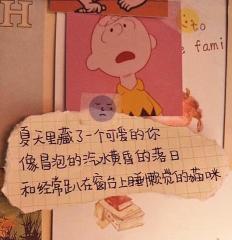 to
e fami
夏天里藏了一个可爱的你
像冒泡的汽水黄昏的落日
和经常趴在窗台上睡懒觉的猫咪